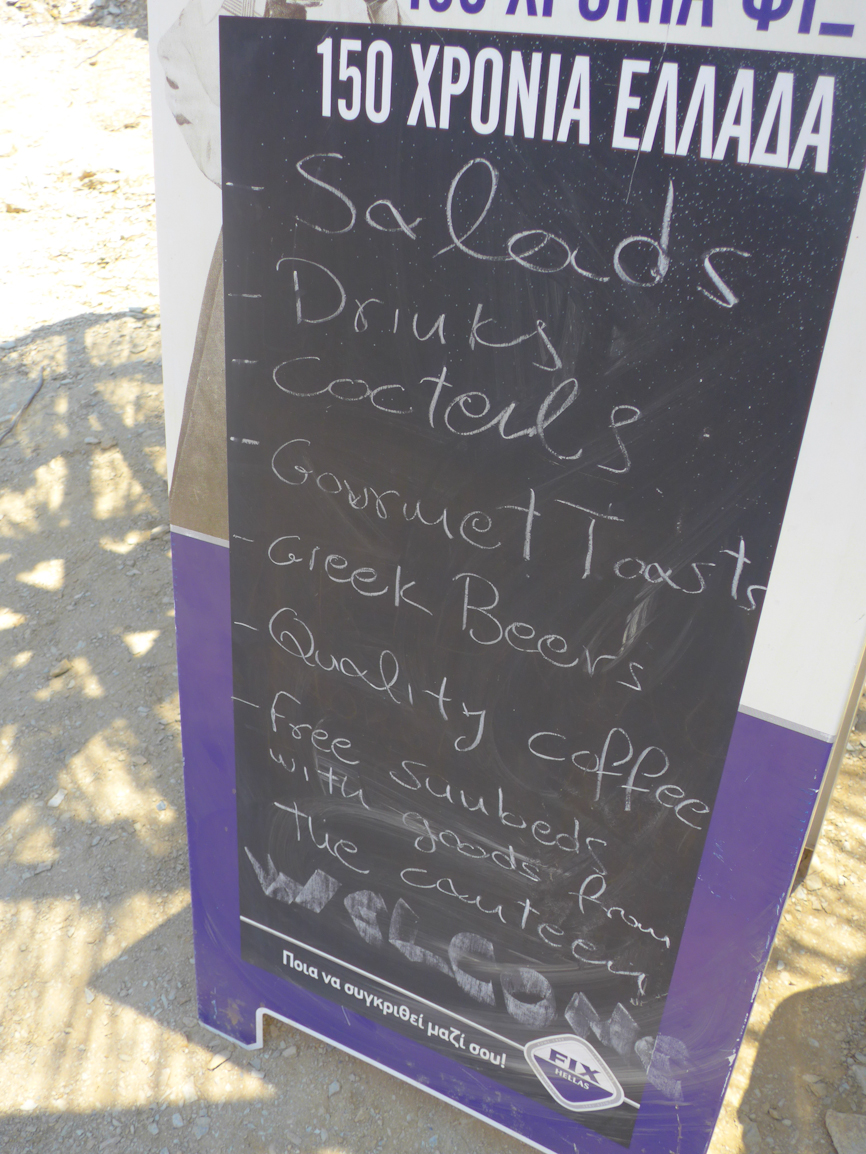 150 ΧΡΟΝΙΑ ΕΛΛΑΔΑ
- Salads
- Drinks
- Cocteils
- Gourmet Toasts
- Greek Beers
- Quality coffee
- Free sunbeds
with goods from
the canteen
WELCOME
Ποια να συγκριθεί μαζί σου!
FIX
HELLAS